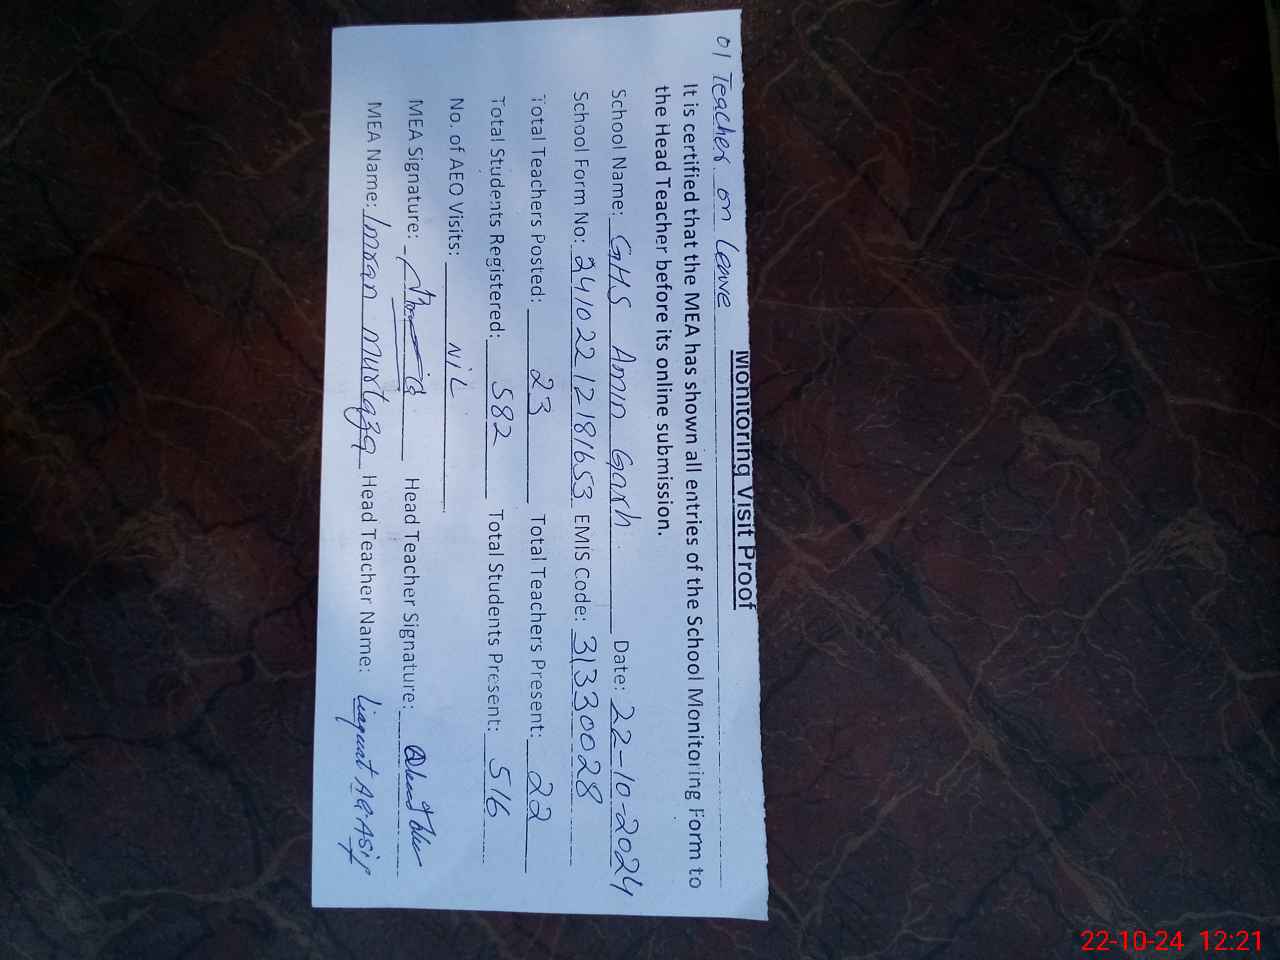 Monitoring Visit Proof
01 Teacher on Leave
It is certified that the MEA has shown all entries of the School Monitoring Form to
the Head Teacher before its online submission.
School Name: GHS Amin Garh Date: 22-10-2024
School Form No: 24102212181653 EMIS Code: 31330028
Total Teachers Posted: 23 Total Teachers Present: 22
Total Students Registered: 582 Total Students Present: 516
No. of AEO Visits: NiL
MEA Signature: Head Teacher Signature:
MEA Name: Imran Murtaza Head Teacher Name: Liaquat Ali Asif
22-10-24 12:21